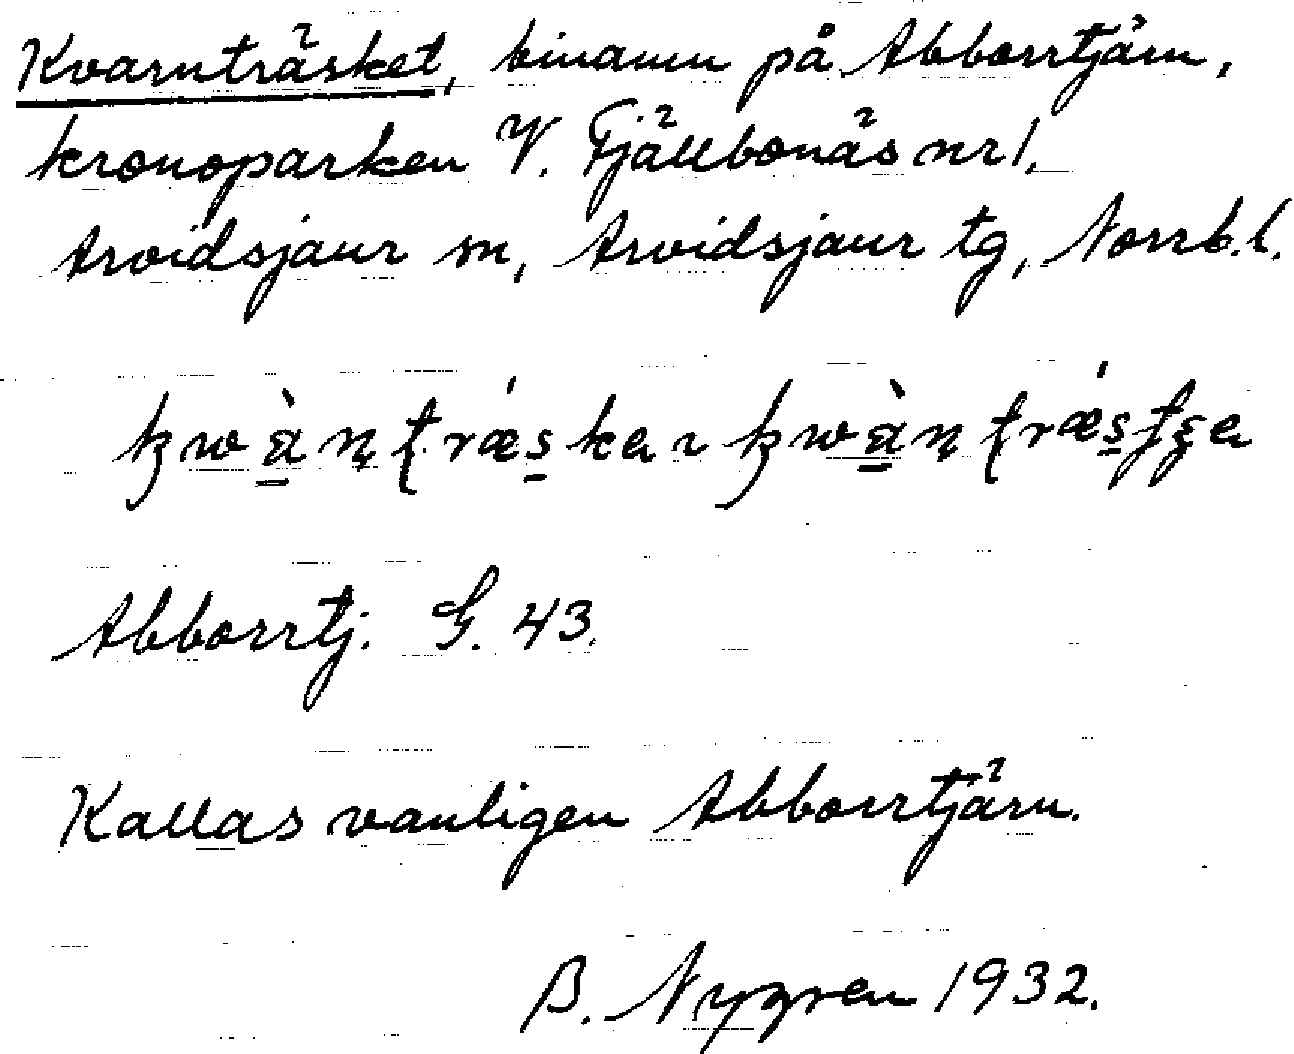 Kvarnträsket, binamn på Abborrtjärn,
kronoparken V. Fjällbonäs nr 1.
Arvidsjaur sn, Arvidsjaur tg, Norrb.l.
Abborrtj. G. 43.
Kallas vanligen Abborrtjärn.
B. Nygren 1932.